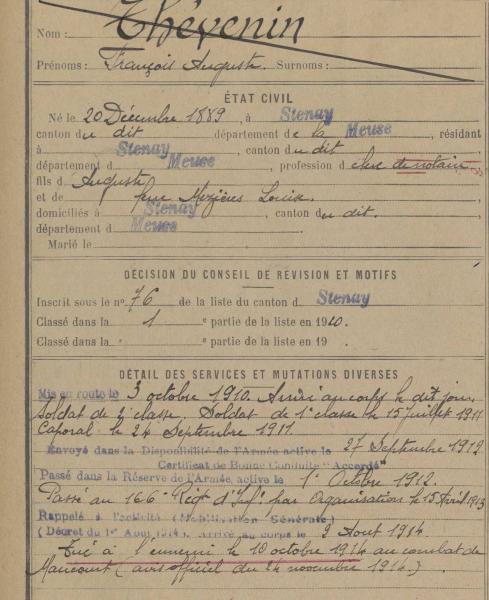 Nom : Thévenin
Prénoms : François Auguste. Surnoms :
ÉTAT CIVIL
Né le 20 Décembre 1889, à Stenay
canton du dit département de la Meuse, résidant
à Stenay, canton du dit
département d Meuse, profession d clerc de notaire,
fils d Auguste
et de feue Mézières Louise
domiciliés à Stenay, canton du dit.
département d Meuse.
Marié le
DÉCISION DU CONSEIL DE RÉVISION ET MOTIFS
Inscrit sous le no 76 de la liste du canton d Stenay
Classé dans la 1 e partie de la liste en 1910.
Classé dans la e partie de la liste en 19 .
DÉTAIL DES SERVICES ET MUTATIONS DIVERSES
Mis en route le 3 octobre 1910. Arrivé au corps le dit jour.
Soldat de 2e classe. Soldat de 1e classe le 15 juillet 1911
Caporal le 24 Septembre 1911.
Envoyé dans la Disponibilité de l'Armée active le 27 Septembre 1912
Certificat de Bonne Conduite "Accordé"
Passé dans la Réserve de l'Armée active le 1er Octobre 1912.
Passé au 166e Régt d'Infie par Organisation le 15 Avril 1913
Rappelé à l'activité (Mobilisation Générale)
(Décret du 1er Août 1914). Arrivé au corps le 3 Aout 1914.
Tué à l'ennemi le 10 octobre 1914 au combat de
Maucourt (avis officiel du 24 novembre 1914.)